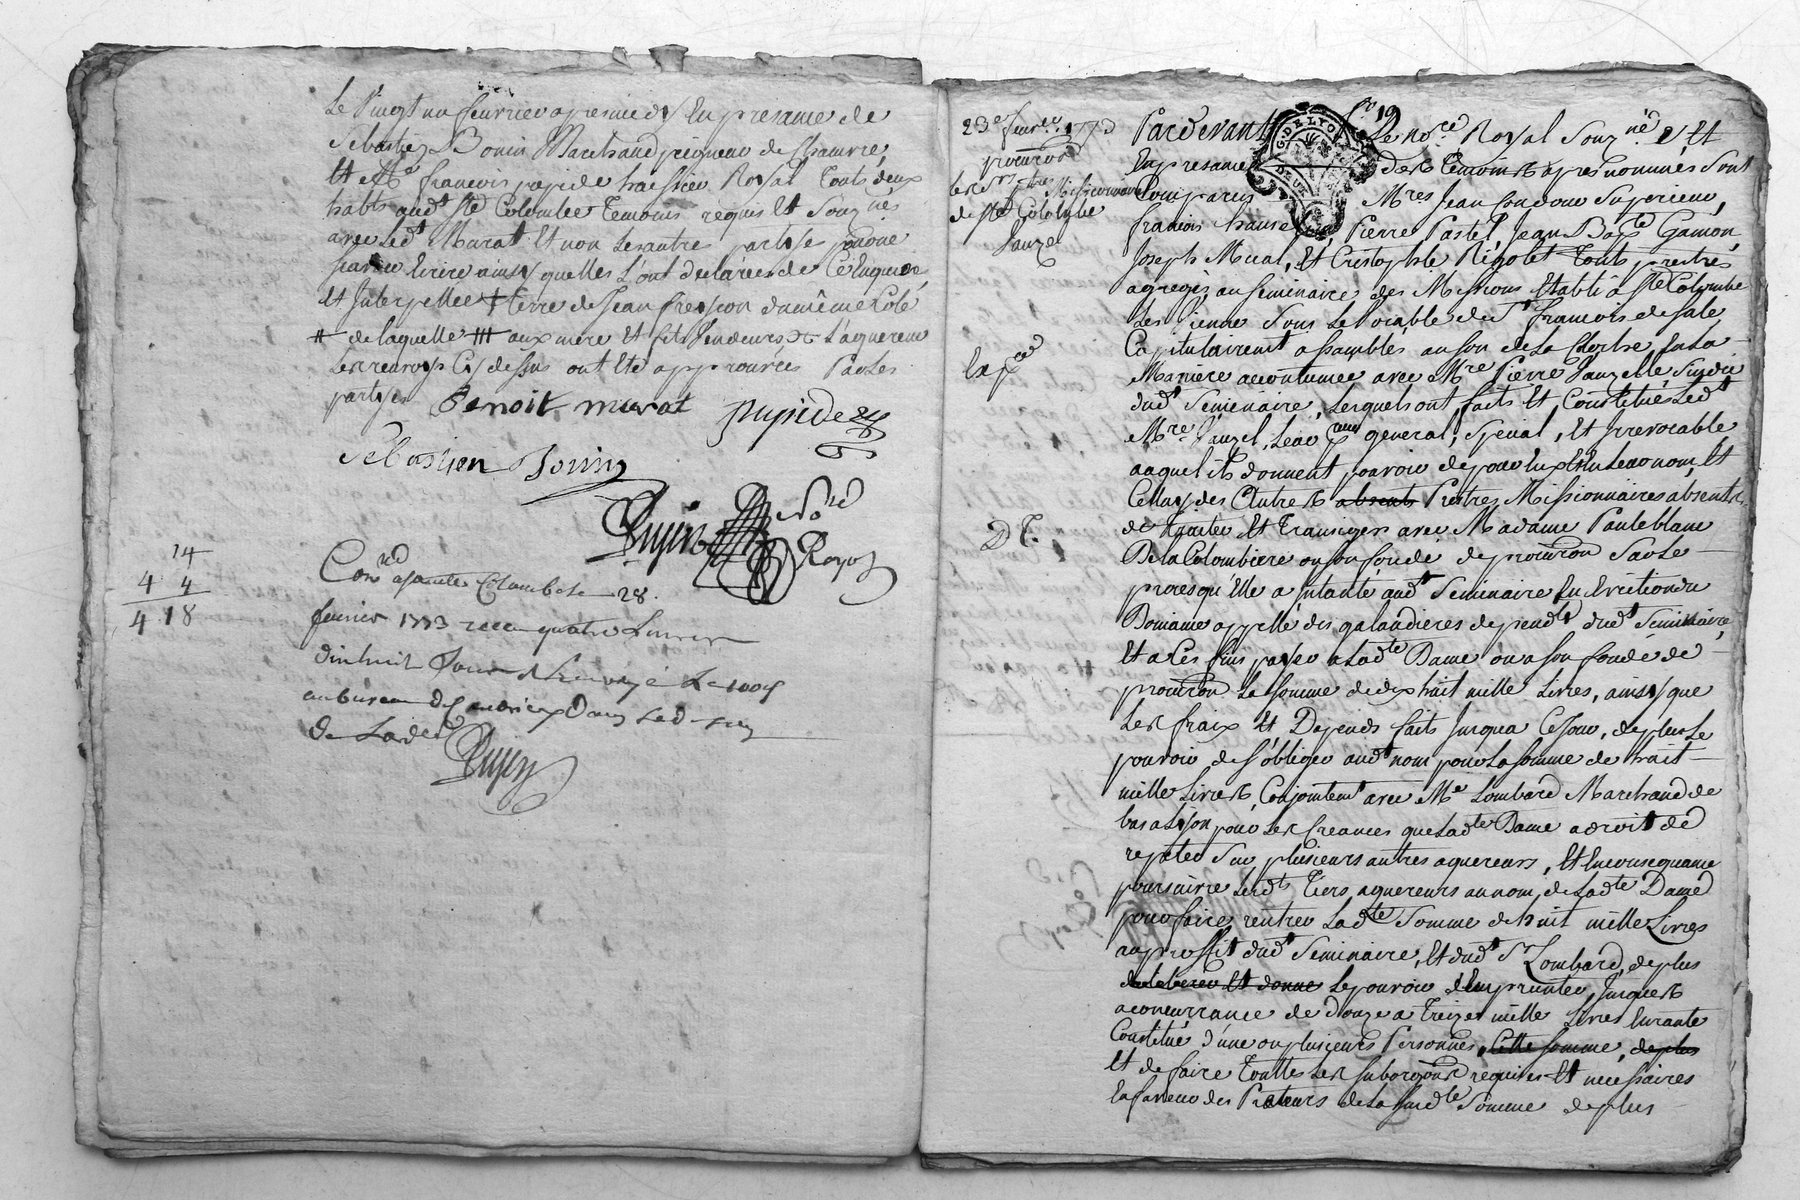 Le vingt un fevrier apres midy En presance de
Sebastien Bonin Marchand peigneur de chanvre,
Et Me françois papide huissier Royal Touts deux
habts audt Ste Colombe temoins requis Et Souznés
avec ledt Murat Et non les autres partyes pour ne
Scavoir Ecrire ainsy quelles l'ont declarées de ce Enquises,
Et Interpellée + terre de Jean fression du même Coté
# de laquelle ### aux mere Et fils Vendeurs L'aquereur
Les renvoys Cy dessus ont Eté approuvées Par les
partyes
Benoit murat pupide
Sebastien Bonin
Dujin Nore
Royal
14
4 4
4 18
Conlé a sainte Colombe le 28.
fevrier 1773 receu quatre Livres
dix huit sous
au bureau
de
Dujin
fo 19
23e fevrier 1773
procuron
Missionnaires
de Ste Colombe
Jauzel
Exp
D T.
Pardevant Le nore Royal Souzné Et
En presance des temoins apres nommés Sont
Comparus Mres Jean Superieur,
francois Pierre Pastel, Jean Bapte Gamon,
Joseph Mural, Et Cristophle Rigolet Touts prestres
agregés au Seminaire des Missions Etabli à Ste Colombe
Les Vienne Sous le Vocable de St francois de Sale
Capitulairemt assamblés au son de la Cloche En la
Maniere accoutumée avec Mre Pierre Jauzel le Sindic
dudt Seminaire, Lesquels ont faits Et Constitués Ledt
Mre Jauzel, Leur pour general, Special, Et Irrevocable
auquel ils donnent pouvoir de pour Eux Et En leur nom, Et
Celluy des Autres absents Prestres Missionnaires absents
de Traiter Et Transiger avec Madame Paule blanc
De la Colombiere ou son fondé de procuron Sur le
proces qu'Elle a Intanté audt Seminaire En Eviction du
Domaine appellé des galandieres dependt dudt Seminaire,
Et a Ces fins payer a ladte Dame ou a son fondé de
procuron La somme de dix huit mille Livres, ainsy que
Les fraix Et Depends faits Jusqua Ce Jour, de plus le
pouvoir de s'obliger audt nom pour La somme de huit
mille Livres, Conjointemt avec Me Lombard Marchand de
bas a Lyon pour Les Creances que ladte Dame a droit de
repeter Sur plusieurs autres aquereurs, Et En consequance
poursuivre lesdts Tiers aquereurs au nom, de ladte Dame
pour faire rentrer ladte Somme de huit mille Livres
au proffit dudt Seminaire, Et dudt Sr Lombard, de plus
Et donne le pouvoir d'Emprunter, Jusques
a concurrance de douze a Treize mille Livres En rante
Constitué d'une ou plusieurs Personnes, Cette somme, de plus
Et de faire Touttes Les suborgons requises Et necessaires
En faveur des Preteurs de la susdte Somme de plus